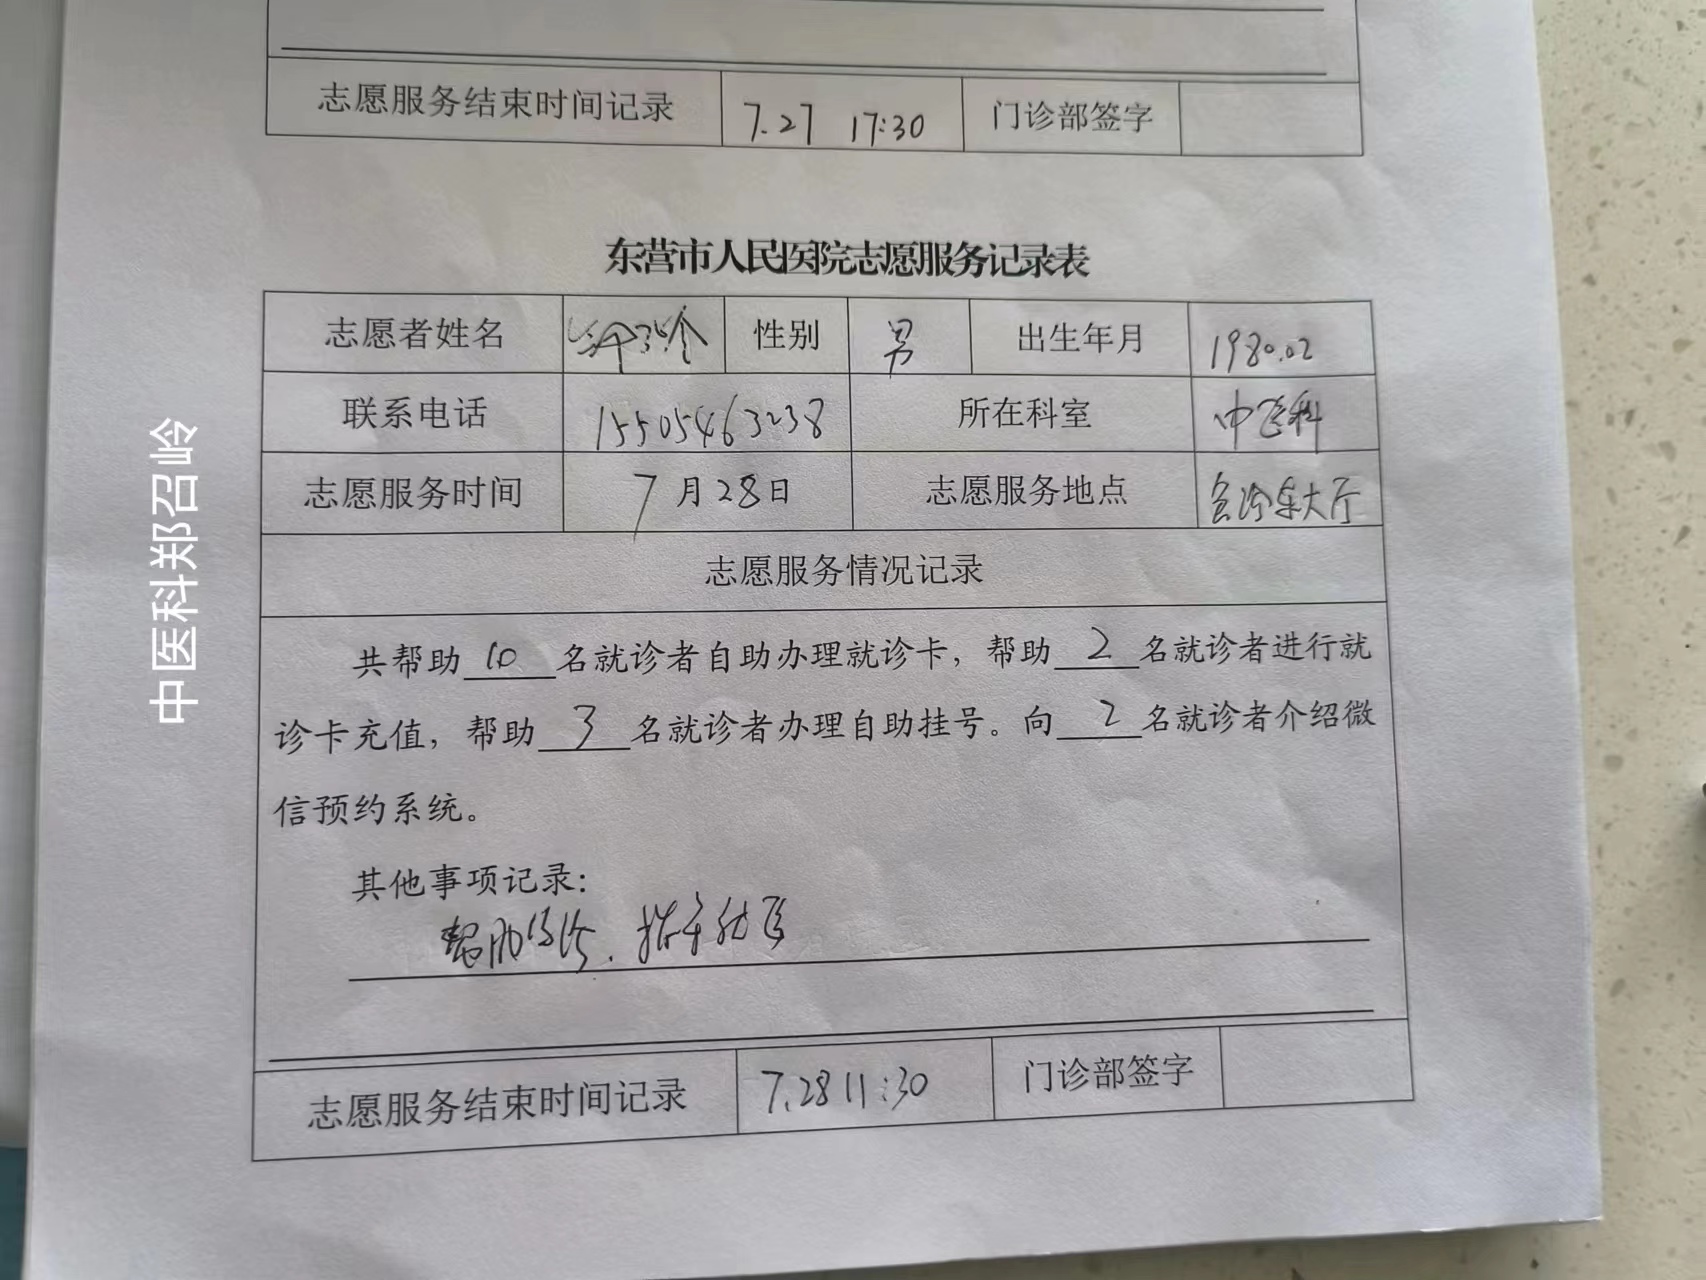 志愿服务结束时间记录 7.27 17:30 门诊部签字
东营市人民医院志愿服务记录表
志愿者姓名 性别 男 出生年月 1980.02
联系电话 15505463238 所在科室 中医科
志愿服务时间 7月28日 志愿服务地点 大厅
志愿服务情况记录
共帮助 10 名就诊者自助办理就诊卡，帮助 2 名就诊者进行就
诊卡充值，帮助 3 名就诊者办理自助挂号。向 2 名就诊者介绍微
信预约系统。
其他事项记录：
帮助
志愿服务结束时间记录 7.28 11:30 门诊部签字
中医科郑召岭